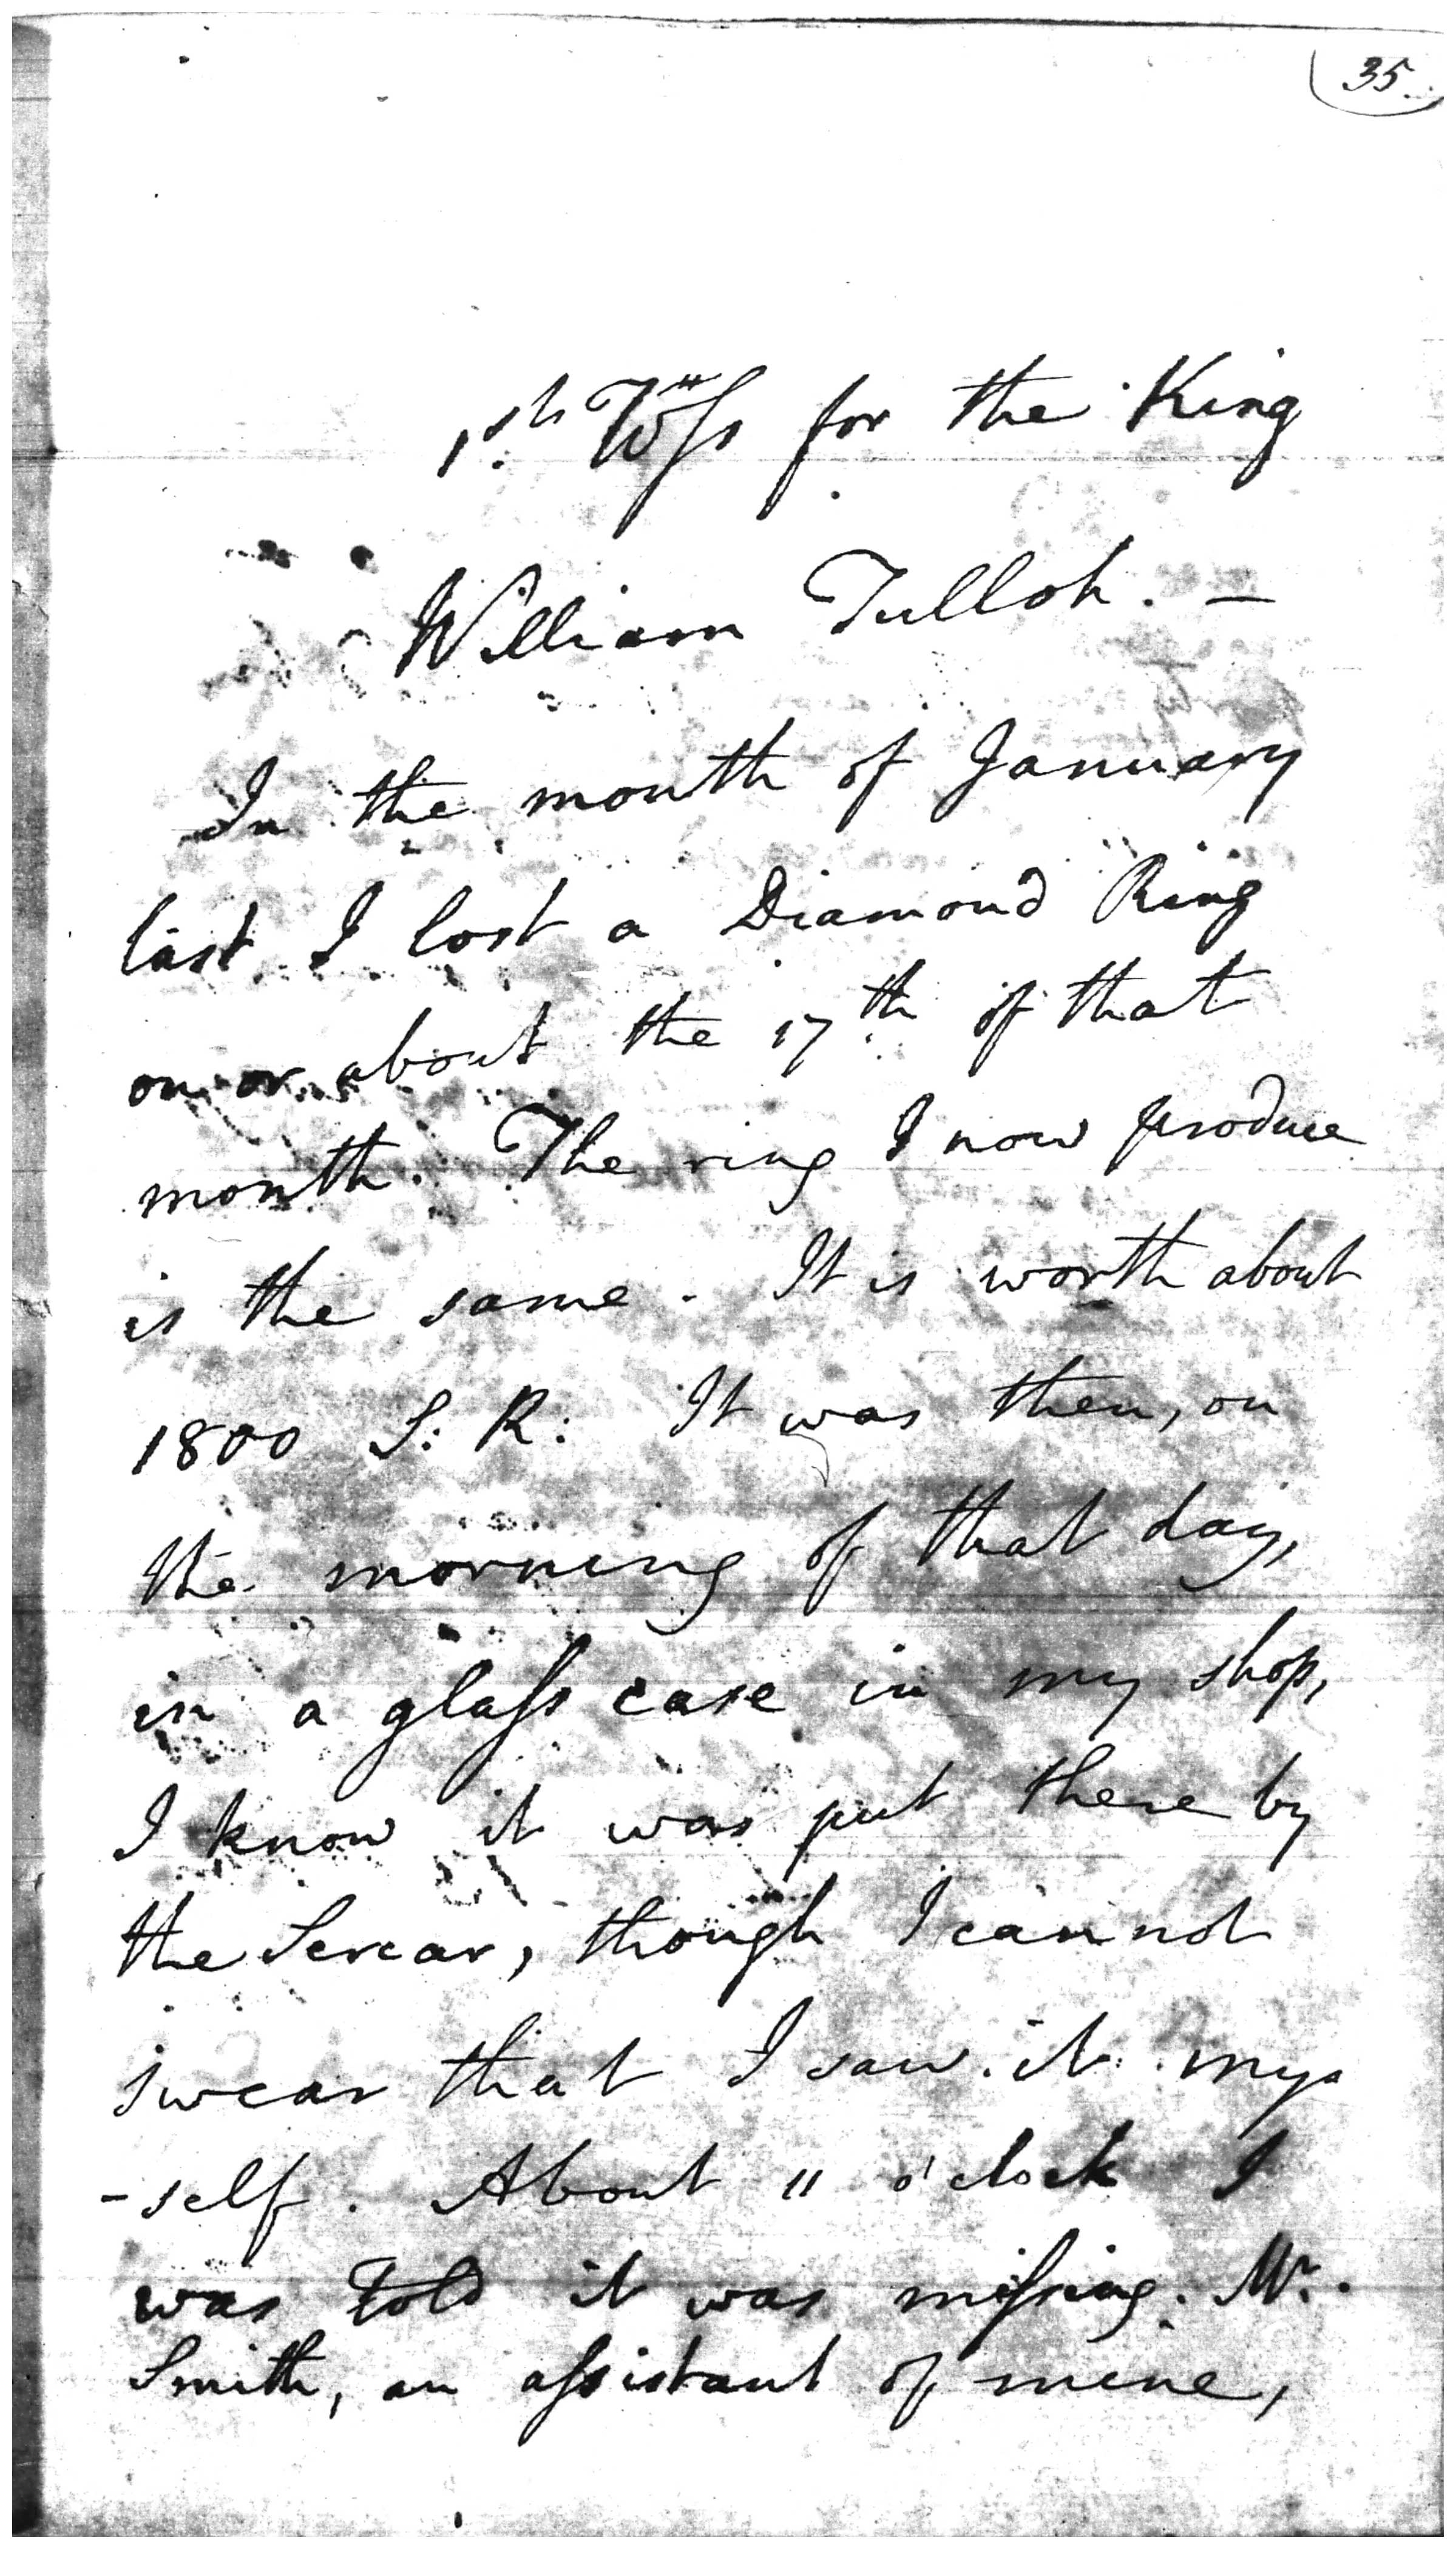 35.
1st. Wss for the King
William Tulloh. —
In the month of January
last I lost a Diamond Ring
on or about the 17th of that
month. The ring I now produce
is the same. It is worth about
1800 S: R: It was then, on
the morning of that day,
in a glaſs case in my shop,
I know it was put there by
the Sercar, though I cannot
swear that I saw it my-
-self. About 11 o'clock I
was told it was miſsing. Mr.
Smith, an aſsistant of mine,